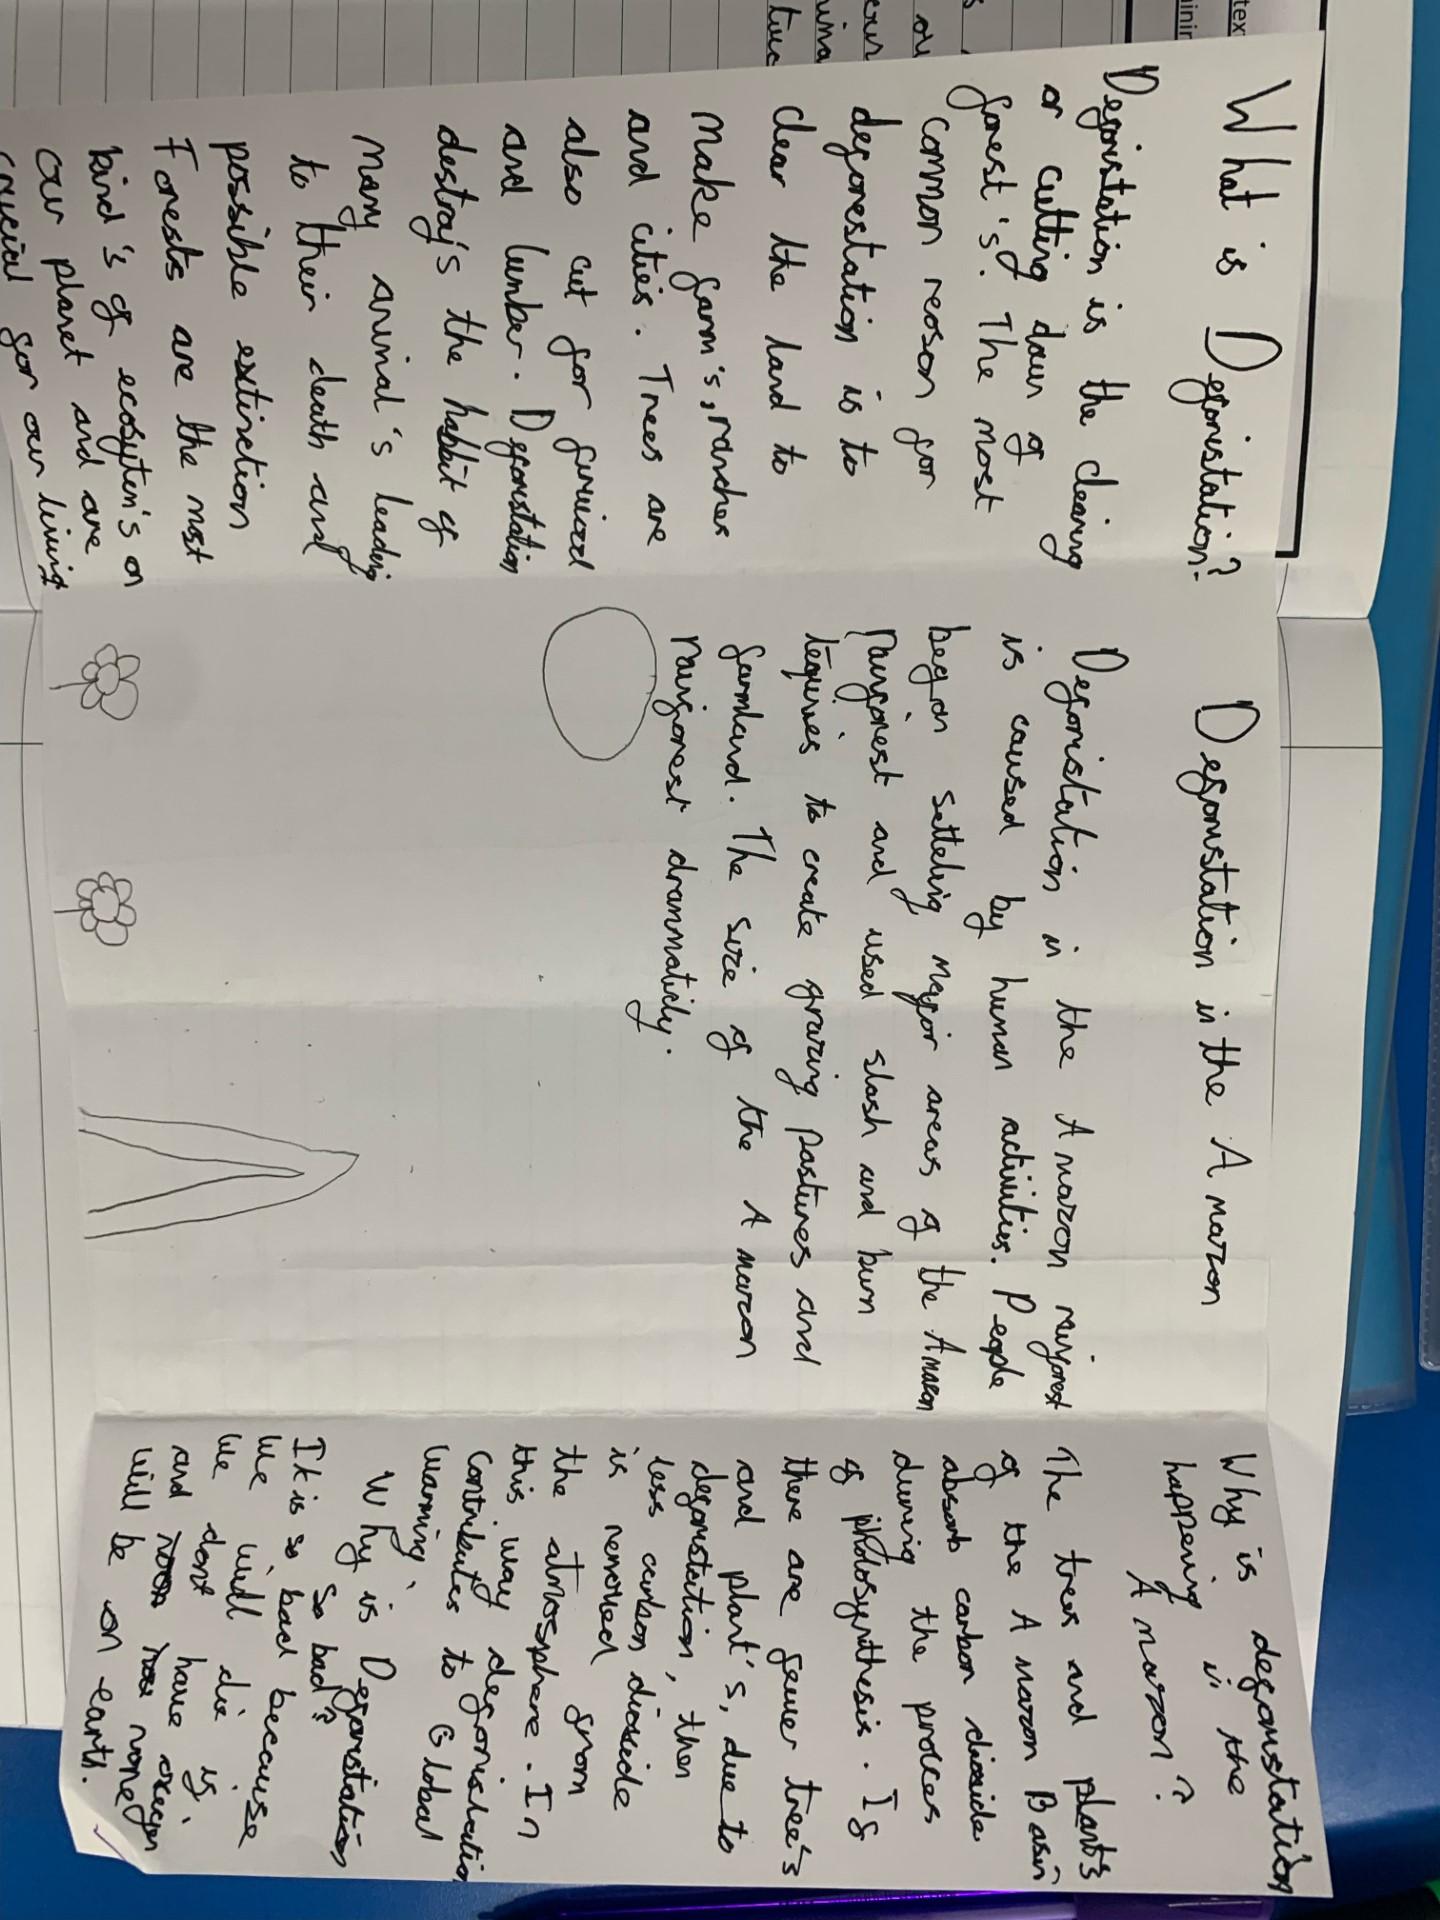 What is Deforistation?
Deforistation is the clearing
or cutting down of
forest's. The most
common reason for
deforestation is to
clear the land to
make farm's, ranches
and cities. Trees are
also cut for
and lumber. Deforistation
destroy's the habbit of
many animal's leading
to their death and
possible extinction
Forests are the most
kind's of on
our planet and are
crucial for our living
Deforistation in the Amazon
Deforistation in the Amazon
is caused by human activities. People
began setteling major areas of the Amazon
rainforest and used slash and burn
to create grazing pastures and
farmland. The size of the Amazon
rainforest drammaticly.
Why is deforistation
happening in the
Amazon?
The trees and plants
of the Amazon Basin
absorb carbon dioxide
during the process
of photosynthesis. If
there are fewer tree's
and plant's, due to
deforistation, then
less carbon dioxide
is removed
the atmosphere. In
this way
contributes to Global
warming.
Why is Deforistation
so bad?
It is so bad because
we will die if
we dont have
and none
will be on earth.